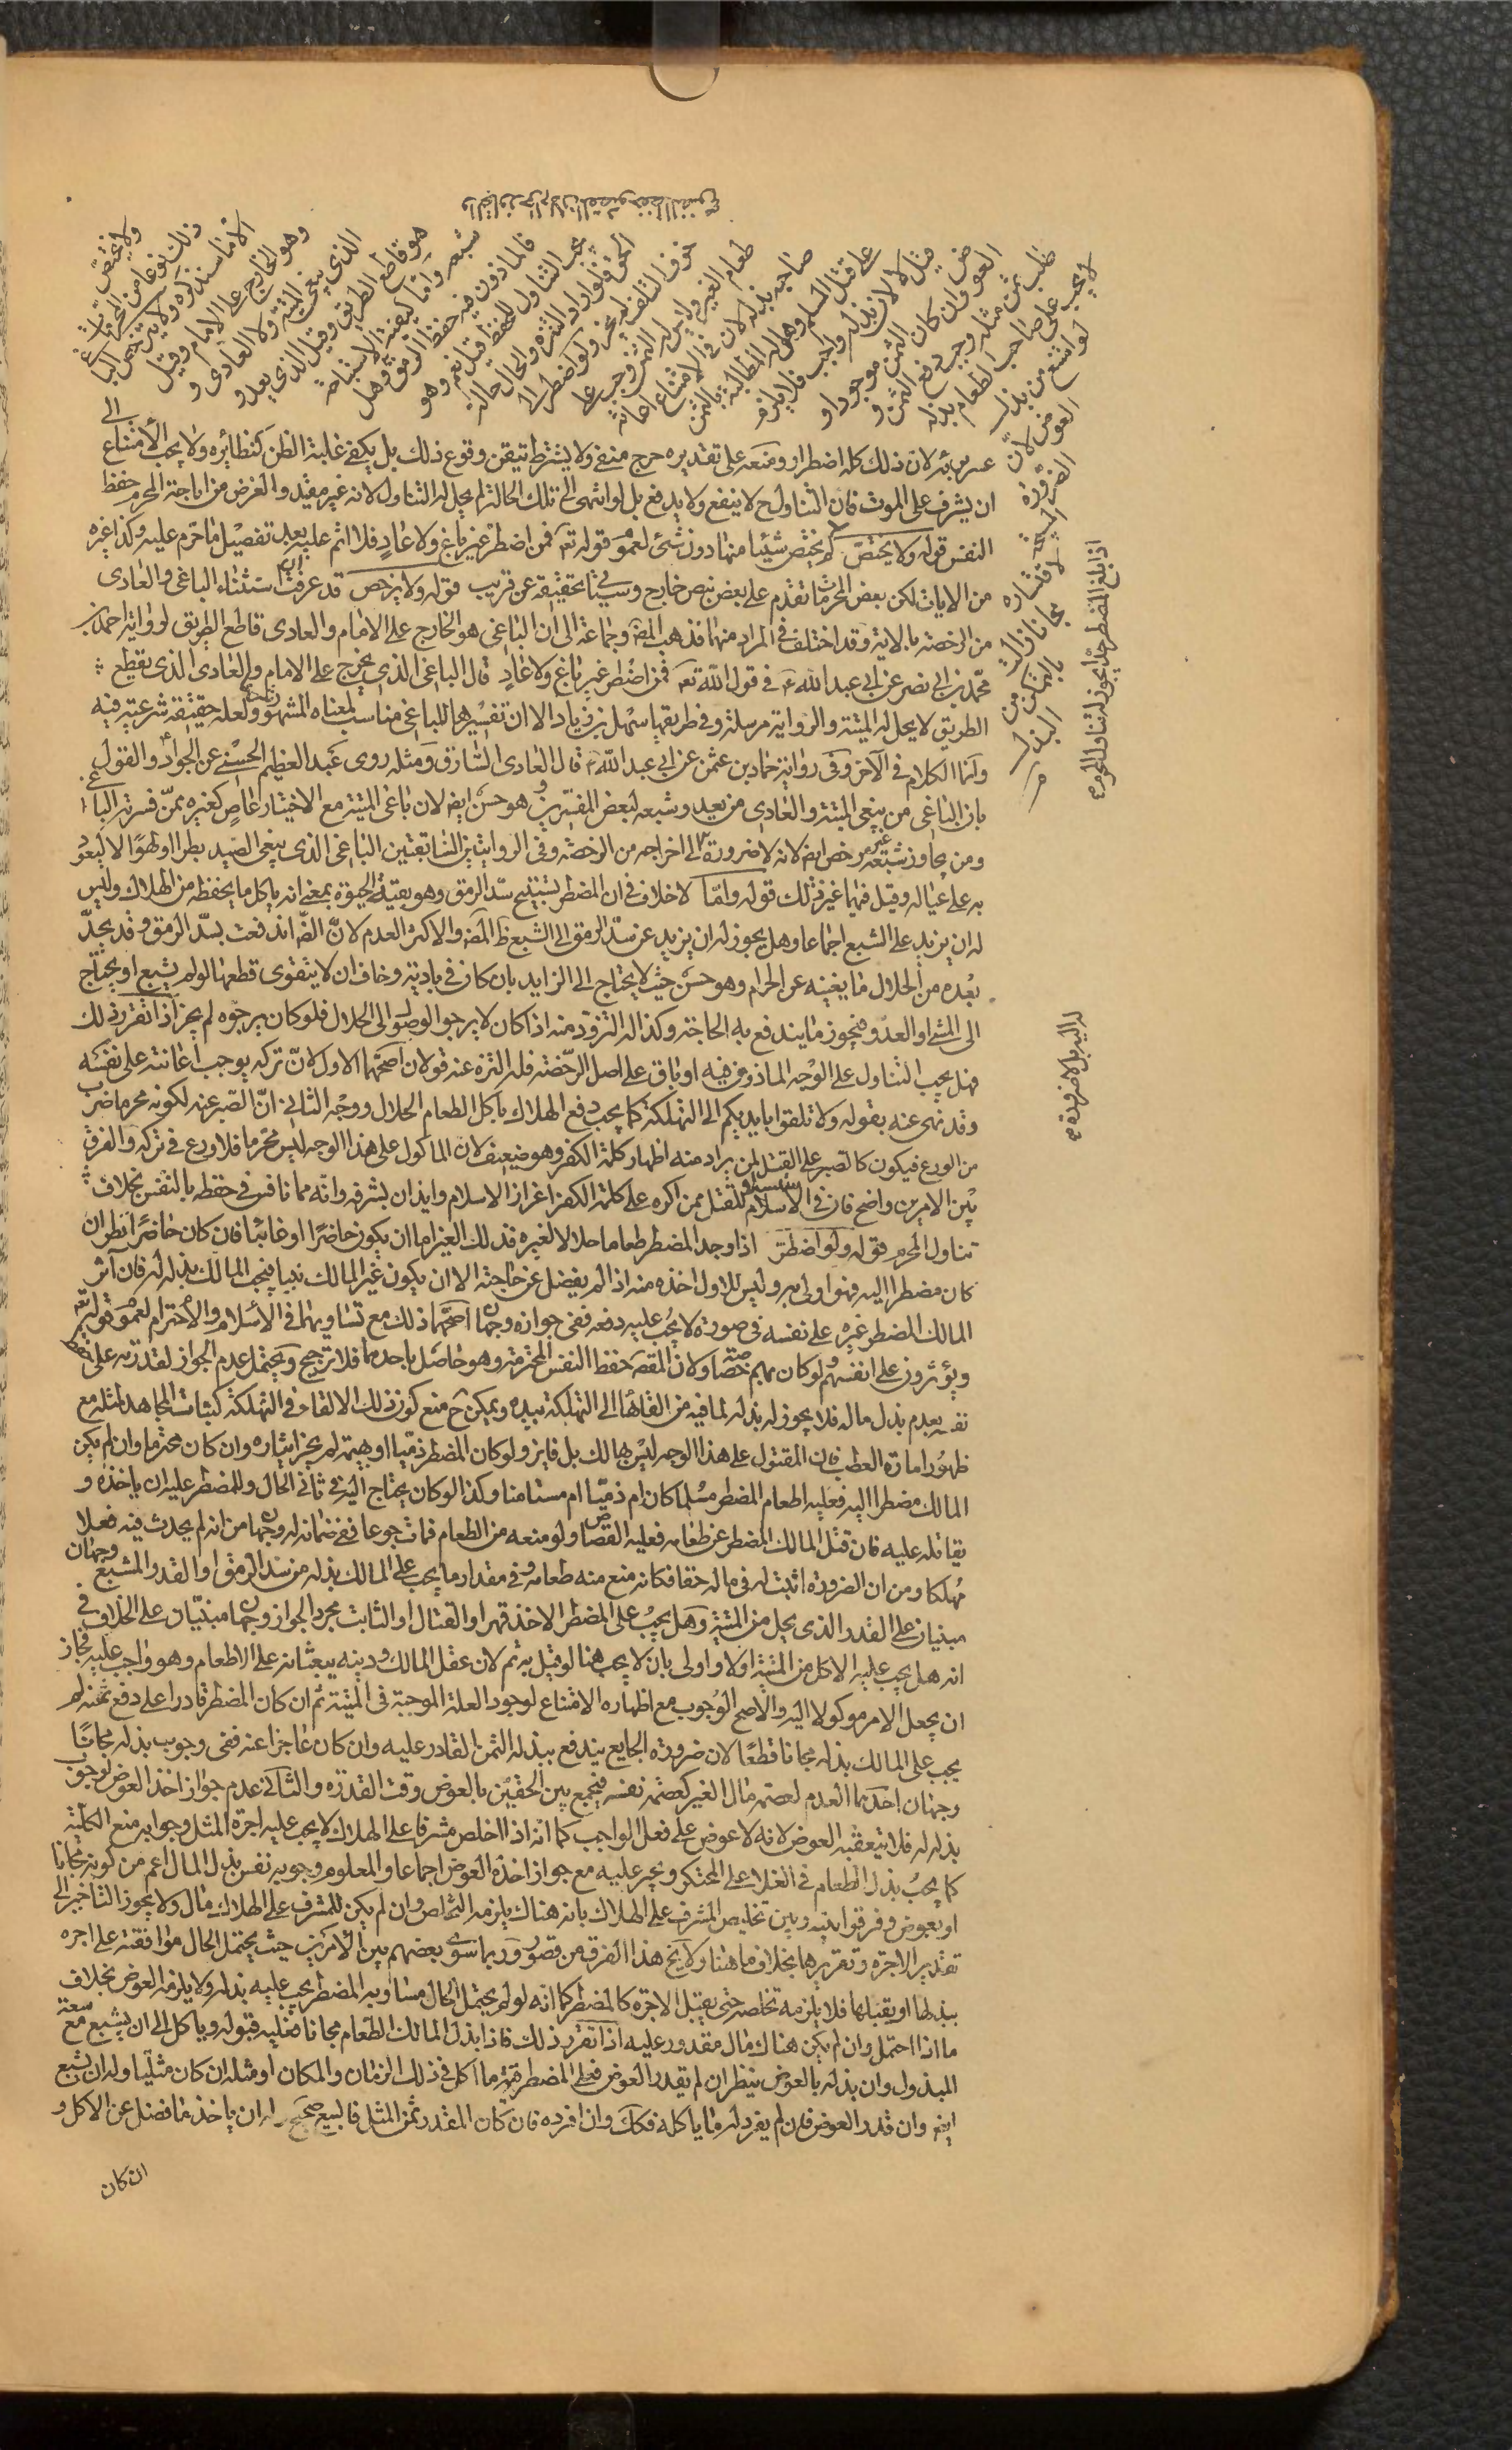 ولا يختص
ذلك نوعا من المحرمات
الا ما سنذكره ولا يترخص الباغي
وهو الخارج على الامام وقيل
الذي يبغي الميتة ولا العادي و
هو قاطع الطريق وقيل الذي يعدو
شبعه واما كيفية الاستباحة
فالماذون فيه حفظ الرمق وهل
يجب التناول للحفظ قيل نعم وهو
الحق فلو اراد التنزه والحال حالة
خوف التلف لم يجز ولو اضطر الى
طعام الغير وليس له الثمن وجب على
صاحبه بذله لان في الامتناع اعانة
على قتل المسلم وهل له المطالبة بالثمن
قيل لا لان بذله واجب فلا يلزم
العوض وان كان الثمن موجودا و
طلب ثمن مثله وجب دفع الثمن و
لا يجب على صاحب الطعام بذله
لو امتنع من بذل
العوض لان
الضرورة
المبيحة
لاقتساره
مجانا زالت
بالتمكن من
البذل
اذا بلغ المضطر حدا يجوز له تناول المحرم
عسر به لان ذلك كله اضطرار ومنعه على تقديره حرج منفي ولا يشترط تيقن وقوع ذلك بل يكفي غلبة الظن كنظائره ولا يجب الامتناع الى
ان يشرف على الموت فان التناول ح لا ينفع ولا يدفع بل لو انتهى الى تلك الحالة لم يحل له التناول لانه غير مفيد والغرض من اباحة المحرم حفظ
النفس قوله ولا يختص لم يختص شيئا منها دون شئ لعموم قوله تع فمن اضطر غير باغ ولا عاد فلا اثم عليه بعد تفصيل ما حرم عليه وكذا غيره
من الايات لكن بعض المحرمات تقدم على بعض بنص خارج وسياتي تحقيقه عن قريب قوله ولا يترخص قد عرفت استثناء الباغي والعادي
من الرخصة بالاية وقد اختلف في المراد منهما فذهب المص وجماعة الى ان الباغي هو الخارج على الامام والعادي قاطع الطريق لرواية احمد بن
محمد بن ابي نصر عن ابي عبد الله ع في قول الله تع فمن اضطر غير باغ ولا عاد قال الباغي الذي يخرج على الامام والعادي الذي يقطع
الطريق لا يحل له الميتة والرواية مرسلة وفي طريقها سهل بن زياد الا ان تفسيرها للباغي مناسب لمعناه المشهور ولعله حقيقة شرعية فيه
وانما الكلام في الآخر وفي رواية حماد بن عثمن عن ابي عبد الله ع قال العادي السارق ومثله روى عبد العظيم الحسني عن الجواد والقول
بان الباغي من يبغي الميتة والعادي من يعدو شبعه لبعض المفسرين وهو حسن ايضا لان باغي الميتة مع الاختيار عاص كغيره ممن فسر به الباغي
ومن يجاوز شبعه غير مرخص ايضا لانه لا ضرورة له الى اخراجه من الرخصة وفي الروايتين السابقتين الباغي الذي يبغي الصيد بطرا او لهوا لا ليعود
به على عياله وقيل فيهما غير ذلك قوله واما لا خلاف في ان المضطر يستبيح سد الرمق وهو بقية الحيوة بمعنى انه ياكل ما يحفظه من الهلاك وليس
له ان يزيد على الشبع اجماعا وهل يجوز له ان يزيد عن سد الرمق الى الشبع ظ المص والاكثر العدم لان الض اندفعت بسد الرمق وقد يجد
بعده من الحلال ما يغنيه عن الحرام وهو حسن حيث لا يحتاج الى الزايد بان كان في بادية وخاف ان لا يتقوى قطعها لو لم يشبع او يحتاج
الى المشي او العدو فيجوز ما يندفع به الحاجة وكذا له التزود منه اذا كان لا يرجو الوصول الى الحلال فلو كان يرجوه لم يجز اذا تقرر ذلك
فهل يجب التناول على الوجه الماذون فيه او باق على اصل الرخصة فله التنزه عنه قولان اصحهما الاول لان تركه يوجب اعانته على نفسه
وقد نهى عنه بقوله ولا تلقوا بايديكم الى التهلكة كما يجب دفع الهلاك باكل الطعام الحلال ووجه الثاني ان الصبر عنه لكونه محرما ضرب
من الورع فيكون كالصبر على القتل لمن يراد منه اظهار كلمة الكفر وهو ضعيف لان الماكول على هذا الوجه ليس محرما فلا ورع في تركه والفرق
بين الامرين واضح فان في الاستسلام للقتل ممن اكره على كلمة الكفر اعزاز الاسلام وايذان بشرفه وانه مما نافس في حفظه بالنفس بخلاف
تناول المحرم قوله ولو اضطر اذا وجد المضطر طعاما حلالا لغيره فذلك الغير اما ان يكون حاضرا او غائبا فان كان حاضرا نظر ان
كان مضطرا اليه فهو اولى به وليس للاول اخذه منه اذا لم يفضل عن حاجته الا ان يكون غير المالك نبيا فيجب المالك بذله له فان آثر
المالك المضطر غيره على نفسه في صورة لا يجب عليه دفعه ففي جوازه وجهان اصحهما ذلك مع تساويهما في الاسلام والاحترام لعموم قوله تع
ويؤثرون على انفسهم ولو كان بهم خصاصة ولان المقصد حفظ النفس المحترمة وهو حاصل باحدهما فلا ترجيح ويحتمل عدم الجواز لقدرته على حفظ
نفسه بعدم بذل ماله فلا يجوز له بذله لما فيه من القائها الى التهلكة بيده ويمكن ح منع كون ذلك الالقاء في التهلكة كثبات المجاهد لمثله مع
ظهور امارة العطب فان المقتول على هذا الوجه ليس بهالك بل فايز ولو كان المضطر ذميا او بهيمة لم يجز ايثاره وان كان محترما وان لم يكن
المالك مضطرا اليه فعليه اطعام المضطر مسلما كان ام ذميا ام مستامنا وكذا لو كان يحتاج اليه في ثاني الحال وللمضطر عليه ان ياخذه و
يقاتله عليه فان قتل المالك المضطر عن طعامه فعليه القصاص ولو منعه من الطعام فمات جوعا ففي ضمانه له وجهان من انه لم يحدث فيه فعلا
مهلكا ومن ان الضرورة اثبت له في ماله حقا فكانه منع منه طعامه وفي مقدار ما يجب على المالك بذله من سد الرمق او القدر المشبع وجهان
مبنيان على القدر الذي يحل من الميتة وهل يجب على المضطر الاخذ قهرا والقتال او الثابت مجرد الجواز وجهان مبنيان على الخلاف في
انه هل يجب عليه الاكل من الميتة او لا واولى بان لا يجب هنا لو قيل به ثم لان عقل المالك ودينه يبعثانه على الاطعام وهو واجب عليه فجاز
ان يجعل الامر موكولا اليه والاصح الوجوب مع اظهاره الامتناع لوجود العلة الموجبة في الميتة ثم ان كان المضطر قادرا على دفع ثمنه لم
يجب على المالك بذله مجانا قطعا لان ضرورة الجايع يندفع ببذله الثمن القادر عليه وان كان عاجزا عنه ففي وجوب بذله مجانا
وجهان احدهما العدم لعصمة مال الغير كعصمة نفسه فيجمع بين الحقين بالعوض وقت القدرة والثاني عدم جواز اخذ العوض لوجوب
بذله له فلا يتعقبه العوض لانه لا عوض على فعل الواجب كما انه اذا خلص مشرفا على الهلاك لا يجب عليه اجرة المثل وجوابه منع الكلية
كما يجب بذل الطعام في الغلا على المحتكر ويجبر عليه مع جواز اخذه العوض اجماعا والمعلوم وجوبه نفس بذل المال اعم من كونه مجانا
او بعوض وفرقوا بينه وبين تخليص المشرف على الهلاك بانه هناك يلزمه التخلص وان لم يكن للمشرف على الهلاك مال ولا يجوز التاخير الى
تقدير الاجرة وتقريرها بخلاف ما هنا ولا يخ هذا الفرق من قصور وربما سوى بعضهم بين الامرين حيث يحتمل الحال موافقته على اجره
يبذلها او يقبلها فلا يلزمه تخلصه حتى يقبل الاجرة كالمضطر كما انه لو لم يحتمل الحال مساوبه المضطر يجب عليه بذله ولا يلزمه العوض بخلاف
ما اذا احتمل وان لم يكن هناك مال مقدور عليه اذا تقرر ذلك فاذا بذل المالك الطعام مجانا فعليه قبوله وياكل الى ان يشبع مع سعة
المبذول وان بذله بالعوض ينظر ان لم يقدر العوض فعلى المضطر قيمة ما اكل في ذلك الزمان والمكان او مثله ان كان مثليا وله ان يشبع
ايض وان قدر العوض فان لم يفرد له ما ياكله فكك وان افرده فان كان المقدر ثمن المثل فالبيع صحيح وله ان ياخذ ما فضل عن الاكل و
ان كان